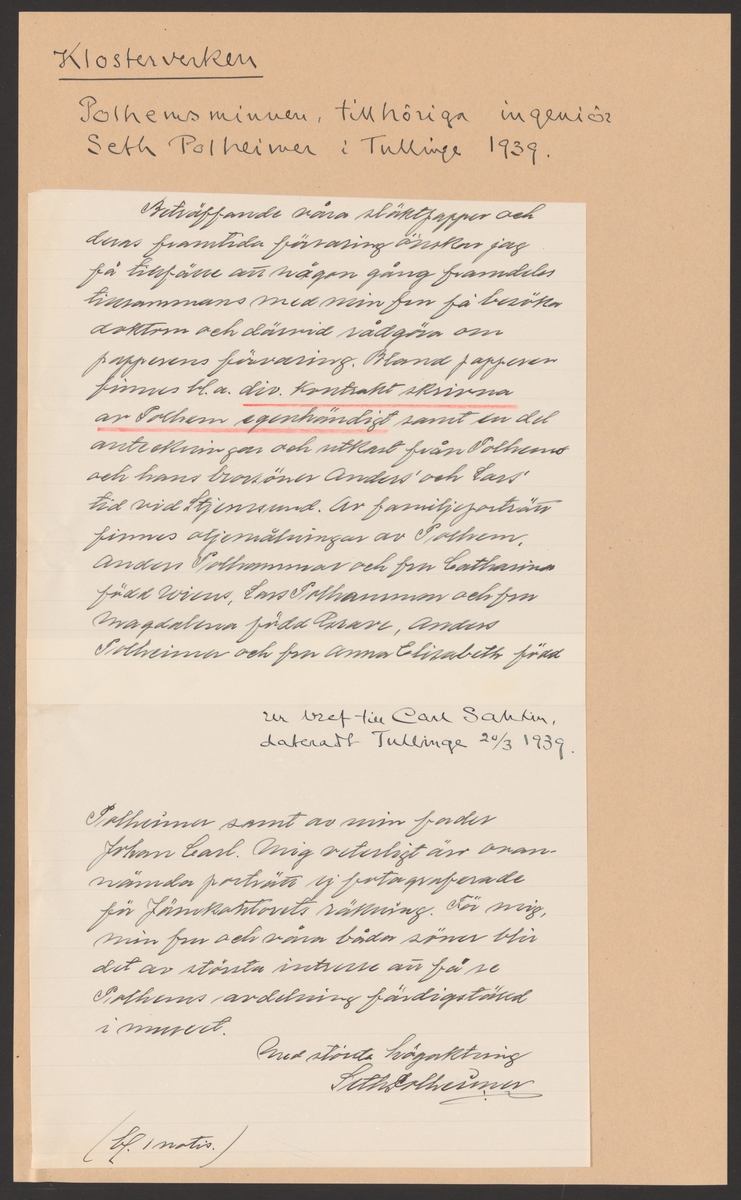 Klosterverken
Polhemsminnen, tillhöriga ingeniör
Seth Polheimer i Tullinge 1939.
Beträffande våra släktpapper och
deras framtida förvaring önskar jag
få tillfälle att någon gång framdeles
tillsammans med min fru få besöka
doktorn och därvid rådgöra om
papperens förvaring. Bland papperen
finnes bl.a. div. kontrakt skrivna
av Polhem egenhändigt samt en del
anteckningar och utkast från Polhems
och hans brorsöner Anders' och Lars'
tid vid Stjernsund. Av familjeporträtt
finnes oljemålningar av Polhem,
Anders Polhammar och fru Catharina
född Wiens, Lars Polhammar och fru
Magdalena född Grave, Anders
Polheimer och fru Anna Elisabeth född
ur bref till Carl Sahlin,
dateradt Tullinge 20/3 1939.
Polheimer samt av min fader
Johan Carl. Mig veterligt äro ovan-
nämda porträtt ej fotograferade
för Järnkontorets räkning. För mig,
min fru och våra båda söner blir
det av största intresse att få se
Polhems avdelning färdigställd
i museet.
Med största högaktning
Seth Polheimer
(bl. 1 notis.)